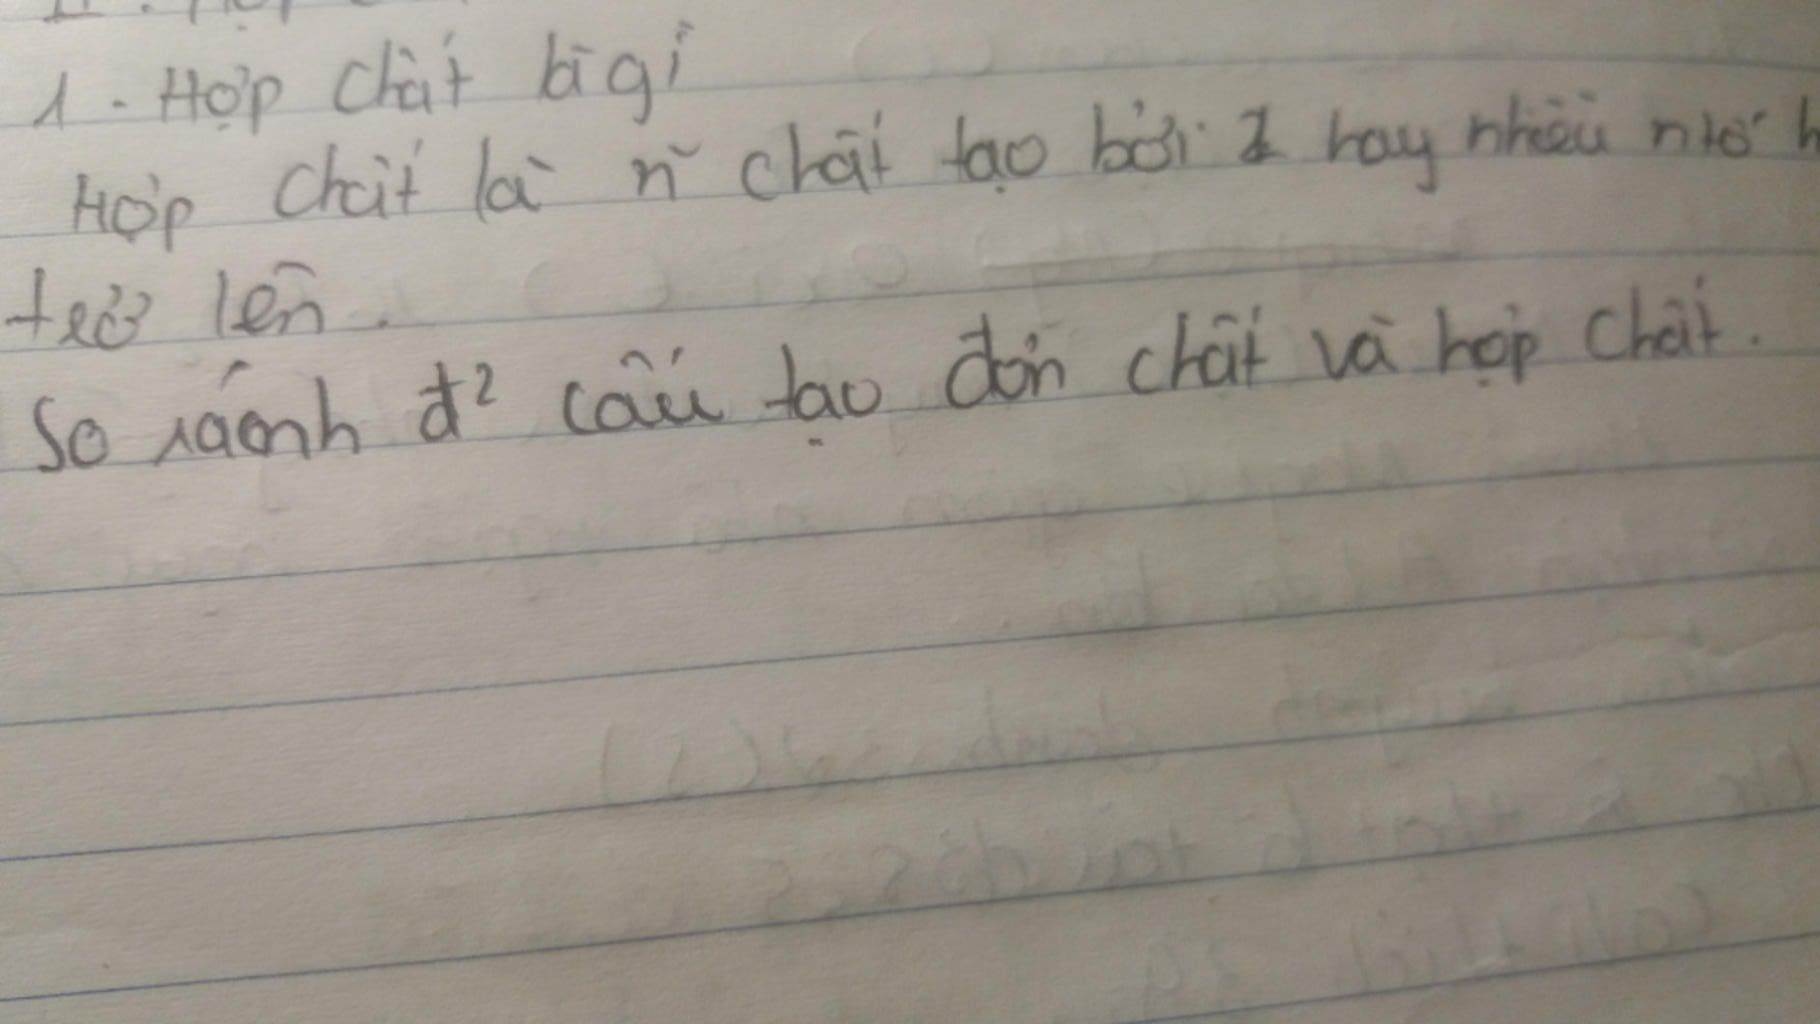 1. Hợp chất là gì
Hợp chất là n~ chất tạo bởi 2 hay nhiều ntố
trở lên.
So sánh đ² cấu tạo đơn chất và hợp chất.